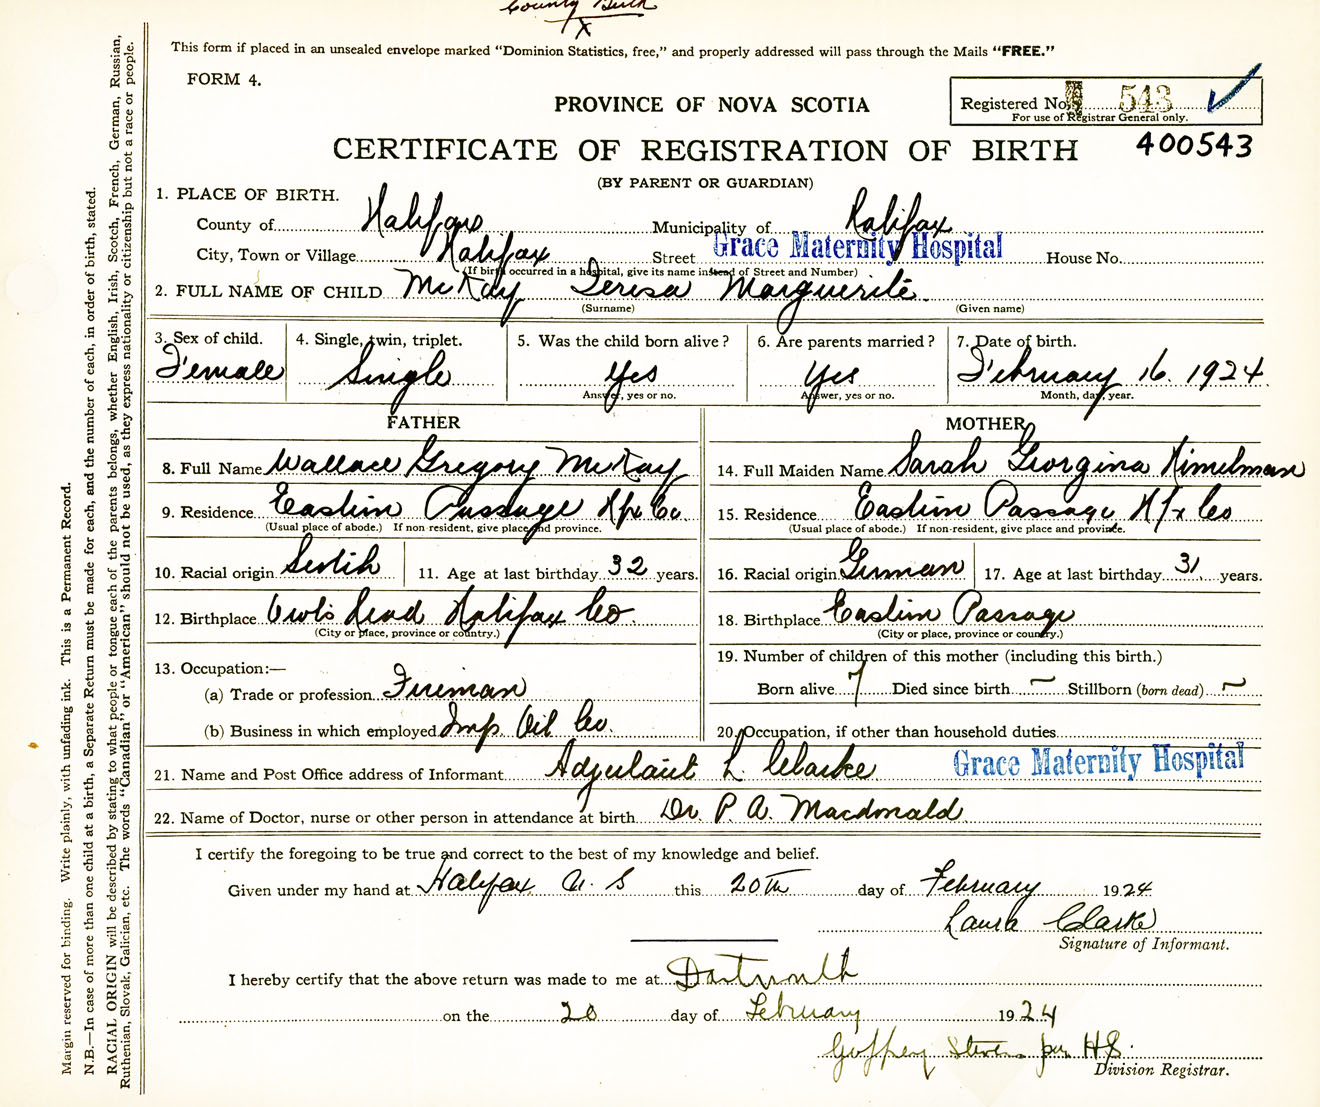 County Birth
X
This form if placed in an unsealed envelope marked "Dominion Statistics, free," and properly addressed will pass through the Mails "FREE."
FORM 4.
PROVINCE OF NOVA SCOTIA
Registered No. 543
For use of Registrar General only.
CERTIFICATE OF REGISTRATION OF BIRTH 400543
(BY PARENT OR GUARDIAN)
1. PLACE OF BIRTH.
County of Halifax Municipality of Halifax
City, Town or Village Halifax Street Grace Maternity Hospital House No.
(If birth occurred in a hospital, give its name instead of Street and Number)
2. FULL NAME OF CHILD McKay Teresa Marguerite
(Surname) (Given name)
3. Sex of child. 4. Single, twin, triplet. 5. Was the child born alive? 6. Are parents married? 7. Date of birth.
Female Single Yes Yes February 16. 1924
Answer, yes or no. Answer, yes or no. Month, day, year.
FATHER MOTHER
8. Full Name Wallace Gregory McKay 14. Full Maiden Name Sarah Georgina Himelman
9. Residence Eastern Passage Hfx Co 15. Residence Eastern Passage Hfx Co
(Usual place of abode.) If non-resident, give place and province. (Usual place of abode.) If non-resident, give place and province.
10. Racial origin Scotch 11. Age at last birthday 32 years. 16. Racial origin German 17. Age at last birthday 31 years.
12. Birthplace Owls Head Halifax Co. 18. Birthplace Eastern Passage
(City or place, province or country.) (City or place, province or country.)
13. Occupation:— 19. Number of children of this mother (including this birth.)
(a) Trade or profession Fireman Born alive 7 Died since birth ~ Stillborn (born dead) ~
(b) Business in which employed Imp. Oil Co. 20. Occupation, if other than household duties
21. Name and Post Office address of Informant Adjutant L. Clarke Grace Maternity Hospital
22. Name of Doctor, nurse or other person in attendance at birth Dr. P. A. Macdonald
I certify the foregoing to be true and correct to the best of my knowledge and belief.
Given under my hand at Halifax N. S this 20th day of February 1924
Laura Clarke
Signature of Informant.
I hereby certify that the above return was made to me at Dartmouth
on the 20 day of February 1924
Goffrey Stevens per H.S.
Division Registrar.
Margin reserved for binding. Write plainly, with unfading ink. This is a Permanent Record.
N.B.—In case of more than one child at a birth, a Separate Return must be made for each, and the number of each, in order of birth, stated.
RACIAL ORIGIN will be described by stating to what people or tongue each of the parents belongs, whether English, Irish, Scotch, French, German, Russian,
Ruthenian, Slovak, Galician, etc. The words "Canadian" or "American" should not be used, as they express nationality or citizenship but not a race or people.